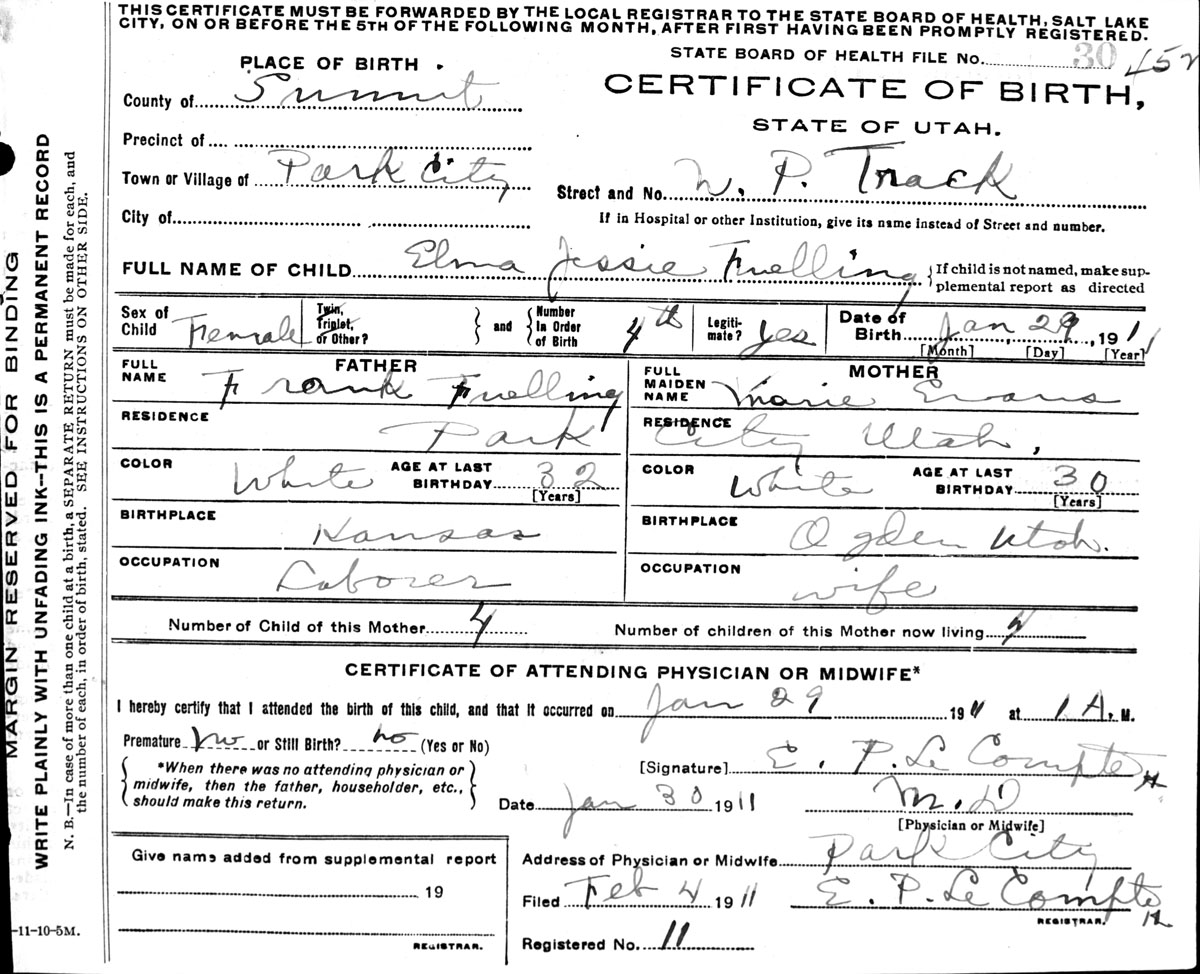 THIS CERTIFICATE MUST BE FORWARDED BY THE LOCAL REGISTRAR TO THE STATE BOARD OF HEALTH, SALT LAKE
CITY, ON OR BEFORE THE 5TH OF THE FOLLOWING MONTH, AFTER FIRST HAVING BEEN PROMPTLY REGISTERED.
STATE BOARD OF HEALTH FILE No. 30 452
PLACE OF BIRTH
CERTIFICATE OF BIRTH,
STATE OF UTAH.
County of Summit
Precinct of
Town or Village of Park City
Street and No. W. P. Track
City of
If in Hospital or other Institution, give its name instead of Street and number.
FULL NAME OF CHILD Elma Jessie Fuelling
{If child is not named, make sup-
plemental report as directed
Sex of Child Female
Twin, Triplet, or Other?
and
Number In Order of Birth 4th
Legiti-mate? yes
Date of Birth Jan 29, 1911
[Month] [Day] [Year]
FATHER
FULL NAME Frank Fuelling
MOTHER
FULL MAIDEN NAME Marie Evans
RESIDENCE Park City Utah,
RESIDENCE
COLOR White AGE AT LAST BIRTHDAY 32
[Years]
COLOR White AGE AT LAST BIRTHDAY 30
[Years]
BIRTHPLACE Kansas
BIRTHPLACE Ogden Utah.
OCCUPATION Laborer
OCCUPATION wife
Number of Child of this Mother 4
Number of children of this Mother now living
CERTIFICATE OF ATTENDING PHYSICIAN OR MIDWIFE*
I hereby certify that I attended the birth of this child, and that it occurred on Jan 29 1911 at 1 A. M.
Premature no or Still Birth? no (Yes or No)
*When there was no attending physician or
midwife, then the father, householder, etc.,
should make this return.
[Signature] E. P. Le Compte
Date Jan 30 1911 M.D
[Physician or Midwife]
Give name added from supplemental report
19
REGISTRAR.
Address of Physician or Midwife Park City
Filed Feb 4 1911 E. P. Le Compte
REGISTRAR.
Registered No. 11
-11-10-5M.
MARGIN RESERVED FOR BINDING
WRITE PLAINLY WITH UNFADING INK--THIS IS A PERMANENT RECORD
N. B.—In case of more than one child at a birth, a SEPARATE RETURN must be made for each, and
the number of each, in order of birth, stated. SEE INSTRUCTIONS ON OTHER SIDE.